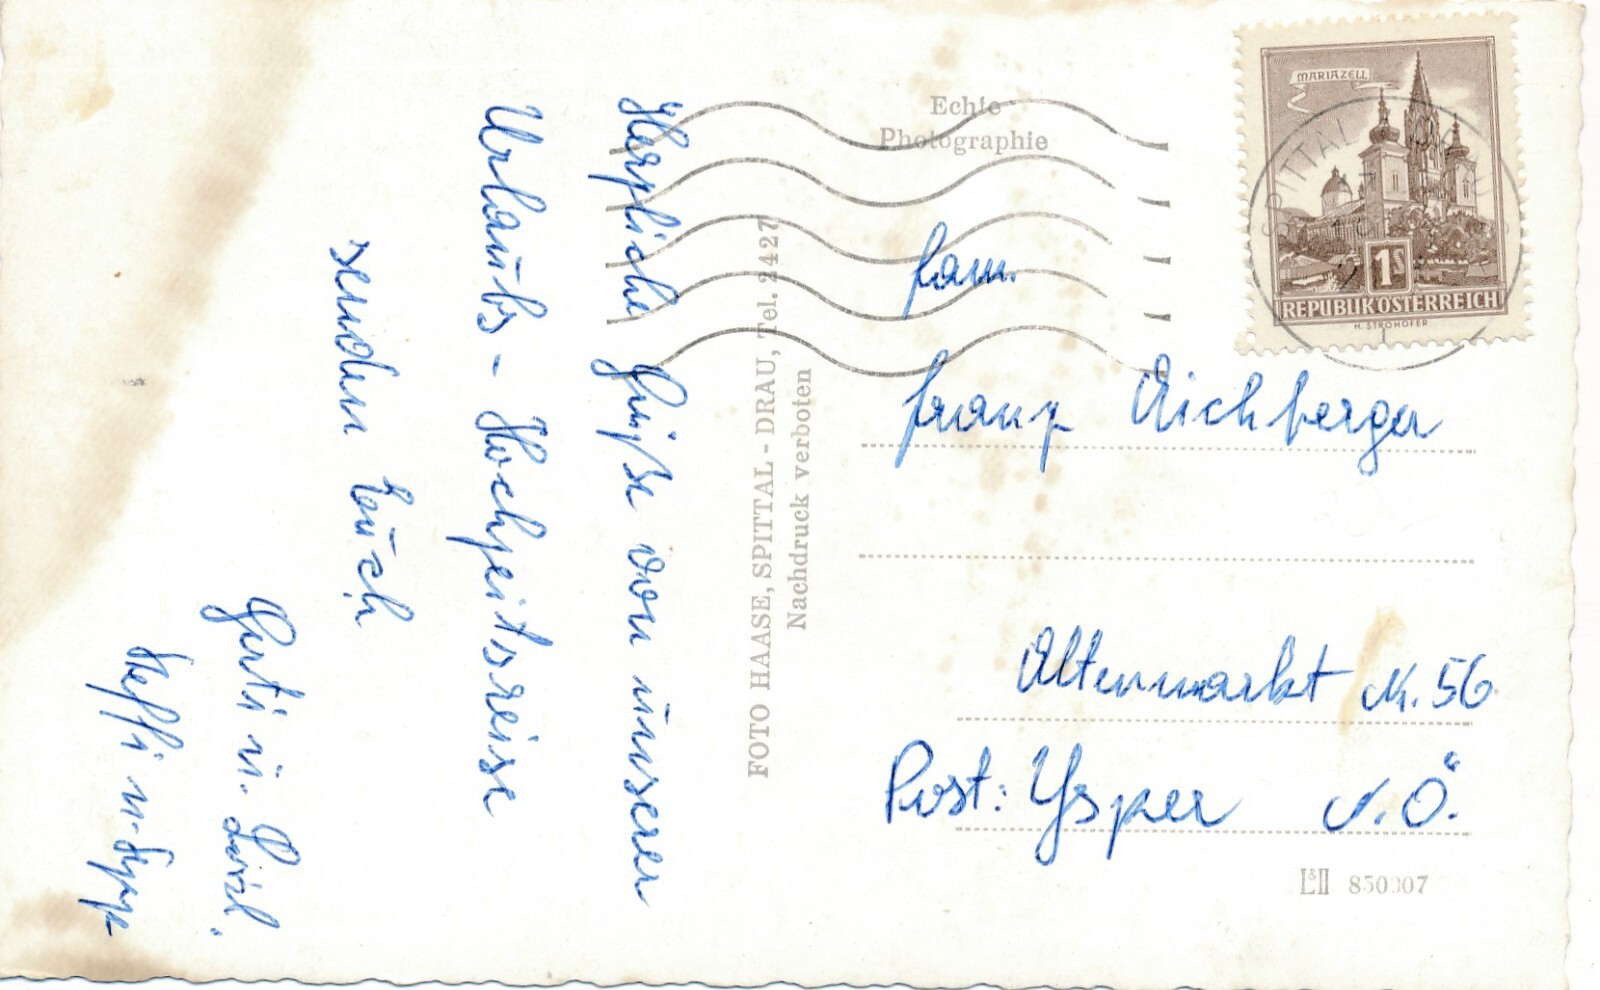 Herzliche Grüße von unserer
Urlaubs - Hochzeitsreise
senden Euch
Gerti u.
Steffi u. Sepp
Echte
Photographie
FOTO HAASE, SPITTAL - DRAU, Tel. 2427
Nachdruck verboten
MARIAZELL
1S
REPUBLIK ÖSTERREICH
H. STROHOFER
SPITTAL
Fam.
Franz Aichberger
Altenmarkt N. 56
Post: Ysper N.Ö.
L&II 850307